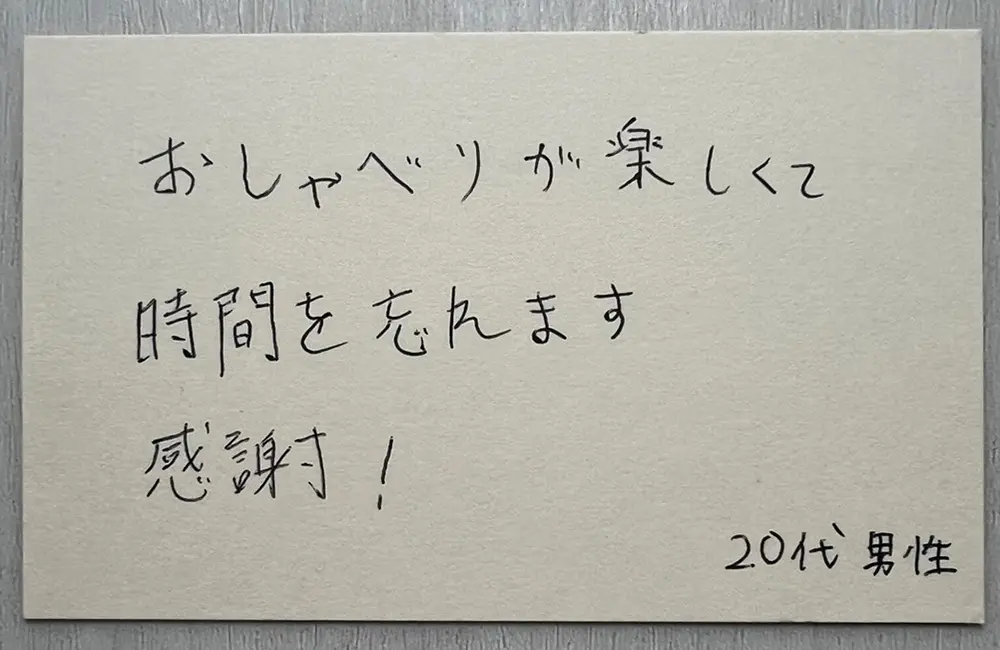 おしゃべりが楽しくて
時間を忘れます
感謝!
20代男性